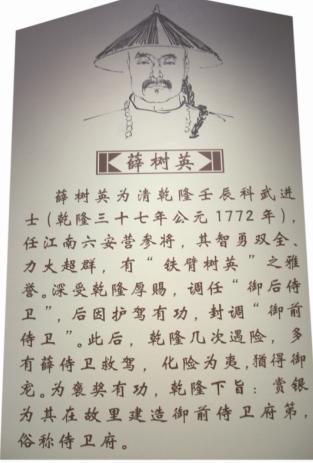 薛树英
薛树英为清乾隆壬辰科武进
士（乾隆三十七年公元1772年），
任江南六安营参将，其智勇双全、
力大超群，有“铁臂树英”之雅
誉。深受乾隆厚赐，调任“御后侍
卫”，后因护驾有功，封调“御前
侍卫”。此后，乾隆几次遇险，多
有薛侍卫救驾，化险为夷，犹得御
宠。为褒奖有功，乾隆下旨：赏银
为其在故里建造御前侍卫府第，
俗称侍卫府。